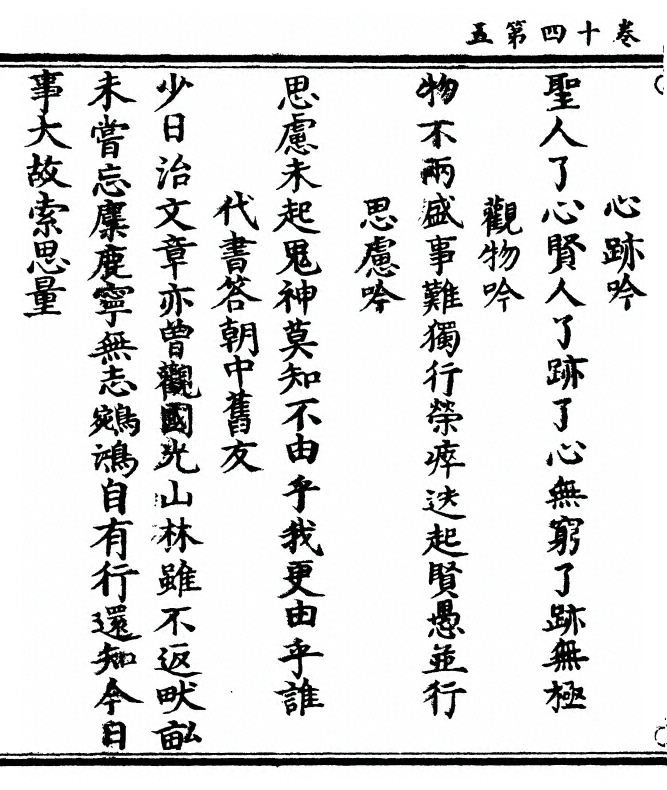 卷十四第五
心跡吟
聖人了心賢人了跡了心無窮了跡無極
觀物吟
物不兩盛事難獨行榮瘁迭起賢愚並行
思慮吟
思慮未起鬼神莫知不由乎我更由乎誰
代書答朝中舊友
少日治文章亦曾觀國光山林雖不返畎畝
未嘗忘麋鹿寧無志鵷鴻自有行還知今日
事大故索思量